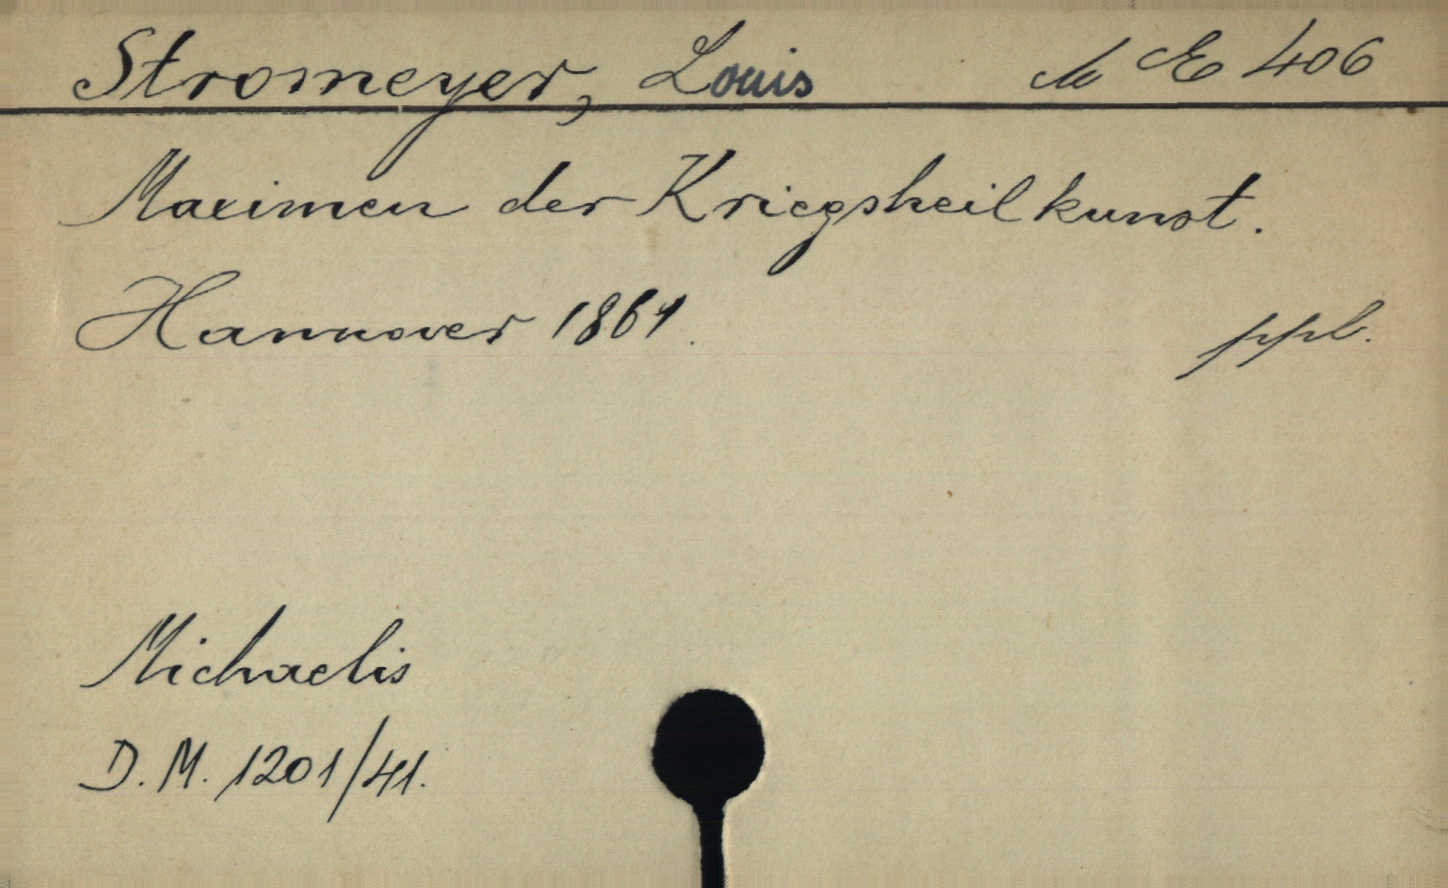 Stromeyer, Louis M E 406
Maximen der Kriegsheilkunst.
Hannover 1861.
ppb.
Michaelis
D. M. 1201/41.